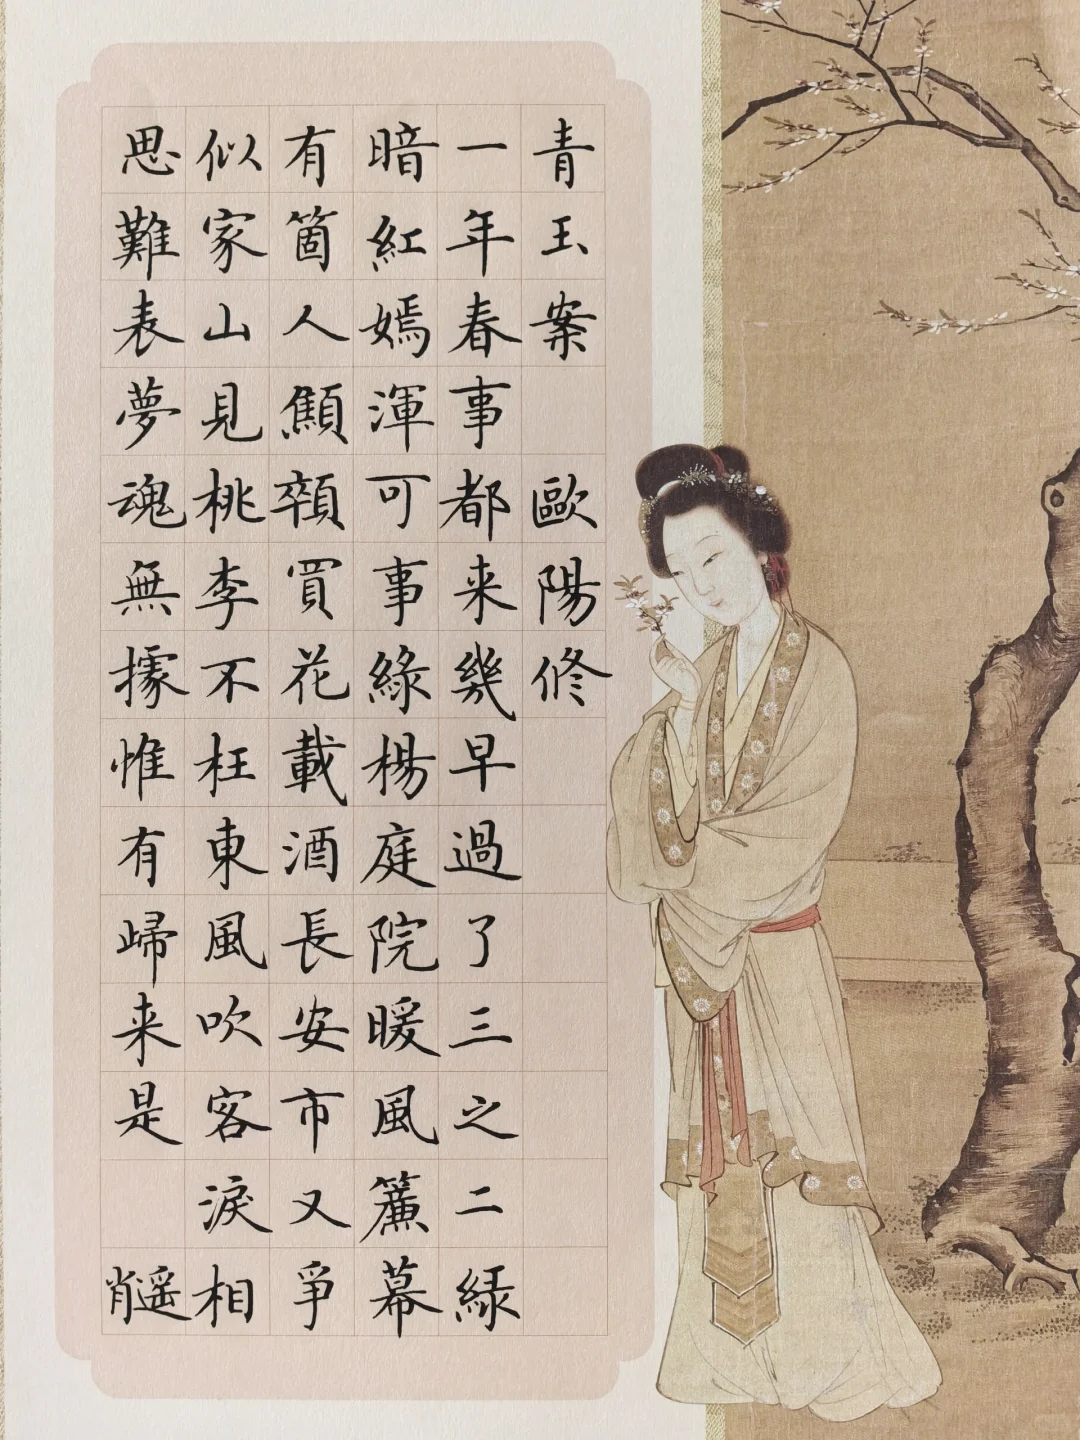 青玉案 歐陽修
一年春事都来幾早過了三之二綠
暗紅嫣渾可事綠楊庭院暖風簾幕
有箇人顦顇買花載酒長安市又爭
似家山見桃李不枉東風吹客淚相
思難表夢魂無據惟有歸来是
肖遥